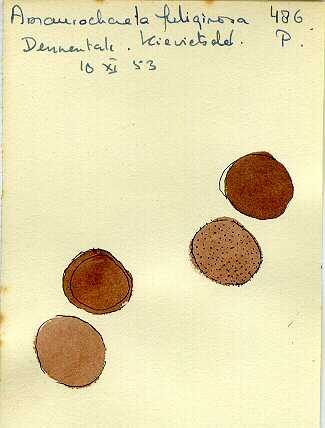 Amaurochaete fuliginosa 486
Dennentak. Kievietsdel. P.
10 XI 53